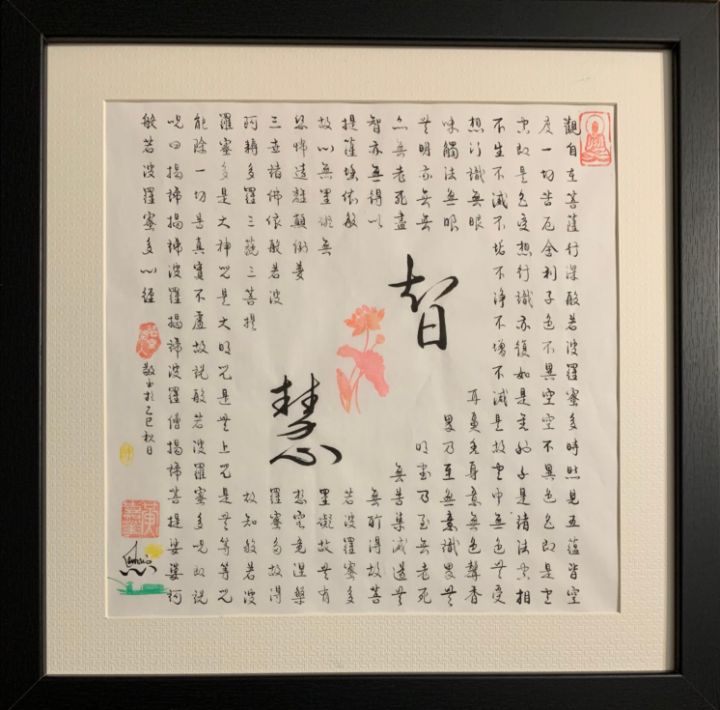 觀自在菩薩行深般若波羅蜜多時照見五蘊皆空
度一切苦厄舍利子色不異空空不異色色即是空
空即是色受想行識亦復如是舍利子是諸法空相
不生不滅不垢不淨不增不減是故空中無色無受
想行識無眼耳鼻舌身意無色聲香
味觸法無眼界乃至無意識界無
無明亦無無明盡乃至無老死
亦無老死盡無苦集滅道無
智亦無得以無所得故菩
提薩埵依般若波羅蜜多
故心無罣礙無罣礙故無有
恐怖遠離顛倒夢想究竟涅槃
三世諸佛依般若波羅蜜多故得
阿耨多羅三藐三菩提故知般若波
羅蜜多是大神咒是大明咒是無上咒是無等等咒
能除一切苦真實不虛故說般若波羅蜜多咒即說
咒曰揭諦揭諦波羅揭諦波羅僧揭諦菩提娑婆訶
般若波羅蜜多心經
敬書於乙巳秋日
智慧